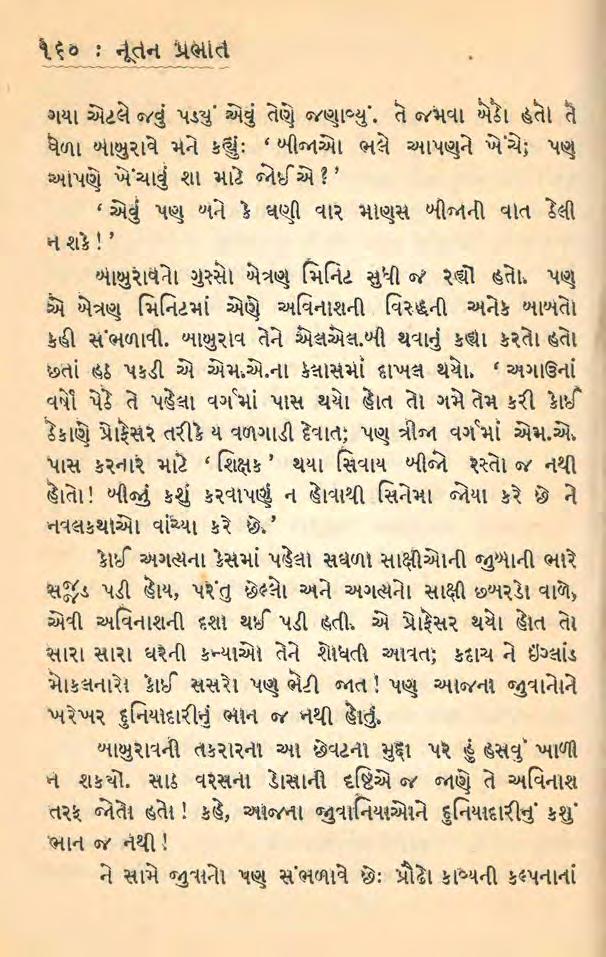 ૧૬૦ : નૂતન પ્રભાત
ગયા એટલે જવું પડ્યું એવું તેણે જણાવ્યું. તે જમવા બેઠો હતો તે
વેળા બાબુરાવે મને કહ્યું: ‘ બીજાઓ ભલે આપણને ખેંચે; પણ
આપણે ખેંચાવું શા માટે જોઈએ ? ’
‘ એવું પણ બને કે ઘણી વાર માણસ બીજાની વાત ઠેલી
ન શકે ! ’
બાબુરાવનો ગુસ્સો બેત્રણ મિનિટ સુધી જ રહ્યો હતો. પણ
એ બેત્રણ મિનિટમાં એણે અવિનાશની વિરુદ્ધની અનેક બાબતો
કહી સંભળાવી. બાબુરાવ તેને એલએલ.બી થવાનું કહ્યા કરતો હતો
છતાં હઠ પકડી એ એમ.એ.ના કલાસમાં દાખલ થયો. ‘ અગાઉનાં
વર્ષો પેઠે તે પહેલા વર્ગમાં પાસ થયો હોત તો ગમે તેમ કરી કોઈ
ઠેકાણે પ્રોફેસર તરીકે ય વળગાડી દેવાત; પણ ત્રીજા વર્ગમાં એમ.એ.
પાસ કરનાર માટે ‘ શિક્ષક ’ થયા સિવાય બીજો રસ્તો જ નથી
હોતો ! બીજું કશું કરવાપણું ન હોવાથી સિનેમા જોયા કરે છે ને
નવલકથાઓ વાંચ્યા કરે છે.’
કોઈ અગત્યના કેસમાં પહેલા સઘળા સાક્ષીઓની જુબાની ભારે
સજ્જડ પડી હોય, પરંતુ છેલ્લો અને અગત્યનો સાક્ષી છબરડો વાળે,
એવી અવિનાશની દશા થઈ પડી હતી. એ પ્રોફેસર થયો હોત તો
સારા સારા ઘરની કન્યાઓ તેને શોધતી આવત; કદાચ ને ઇંગ્લાંડ
મોકલનારો કોઈ સસરો પણ ભેટી જાત ! પણ આજના જુવાનોને
ખરેખર દુનિયાદારીનું ભાન જ નથી હોતું.
બાબુરાવની તકરારના આ છેવટના મુદ્દા પર હું હસવું ખાળી
ન શકયો. સાઠ વરસના ડોસાની દૃષ્ટિએ જ જાણે તે અવિનાશ
તરફ જોતો હતો ! કહે, આજના જુવાનિયાઓને દુનિયાદારીનું કશું
ભાન જ નથી !
ને સામે જુવાનો પણ સંભળાવે છે: પ્રૌઢો કાવ્યની કલ્પનાનાં